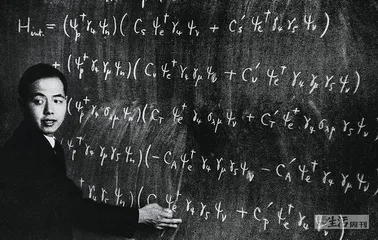 H_int. = (ψ_p† γ_4 ψ_n)(C_S ψ_e† γ_4 ψ_ν + C_S′ ψ_e† γ_4 γ_5 ψ_ν)
+ (ψ_p† ψ_n)(C_V ψ_e† ψ_ν + C_V′ ψ_e† γ_5 ψ_ν)
(ψ_p† γ_4 σ_λμ ψ_n)(C_T ψ_e† γ_4 σ_λμ ψ_ν + C_T′ ψ_e† γ_4 σ_λμ γ_5 ψ_ν
ψ_p† γ_4 γ_μ γ_5 ψ_n)(-C_A ψ_e† γ_4 γ_μ γ_5 ψ_ν - C_A′ ψ_e† γ_4 γ_μ ψ_ν)
γ_4 γ_5 ψ_n)(C ψ_e† γ_4 γ_5 ψ_ν + C_P′ ψ_e† γ_4
生活周刊